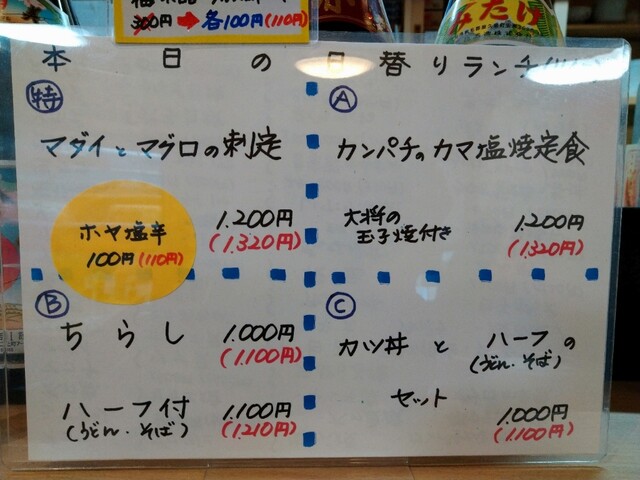 300円 → 各100円(110円)
みたけ
本日の日替りランチ
特
マダイとマグロの刺定
1.200円
(1.320円)
ホヤ塩辛
100円(110円)
A
カンパチのカマ塩焼定食
大将の
玉子焼付き
1.200円
(1.320円)
B
ちらし 1.000円
(1.100円)
ハーフ付 1.100円
(うどん・そば) (1.210円)
C
カツ丼とハーフの
(うどん・そば)
セット
1.000円
(1.100円)